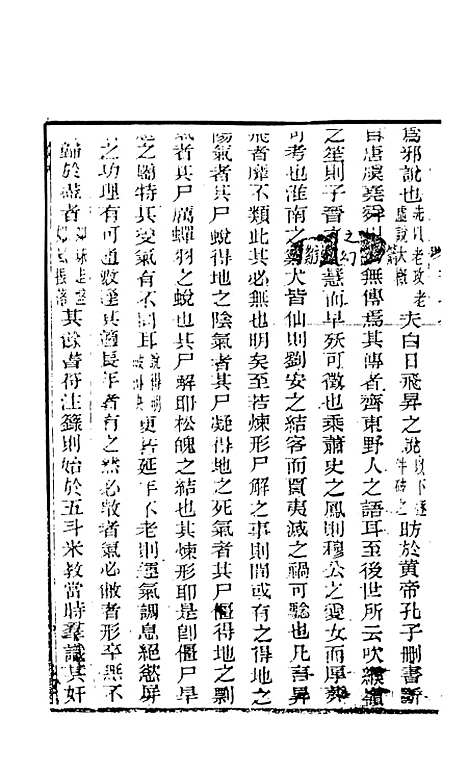 為邪說也先以老攻老虛說大概夫白日飛昇之說以下逐件破之昉於黃帝孔子刪書斷
自唐虞堯舜以無傳焉其傳者齊東野人之語耳至後世所云吹緱嶺
之笙則子晉有幻慧而早殀可徵也乘蕭史之鳳則穆公之愛女而厚葬
可考也淮南之雞犬皆仙則劉安之結客而買夷滅之禍可騐也凡言昇
飛者靡不類此其必無也明矣至若煉形尸解之事則間或有之得地之
陽氣者其尸蛻得地之陰氣者其尸凝得地之死氣者其尸僵得地之剽
氣者其尸厲蟬羽之蛻也其尸解耶松魄之結也其煉形耶是卽僵尸旱
之屬特其受氣有不同耳說得明更若延年不老則運氣調息絕慾屏
之功理有可通數逢其適長年者有之然必敝者氣必敝者形卒無不
歸於盡者其餘書符注籙則始於五斗米教當時羣議其奸